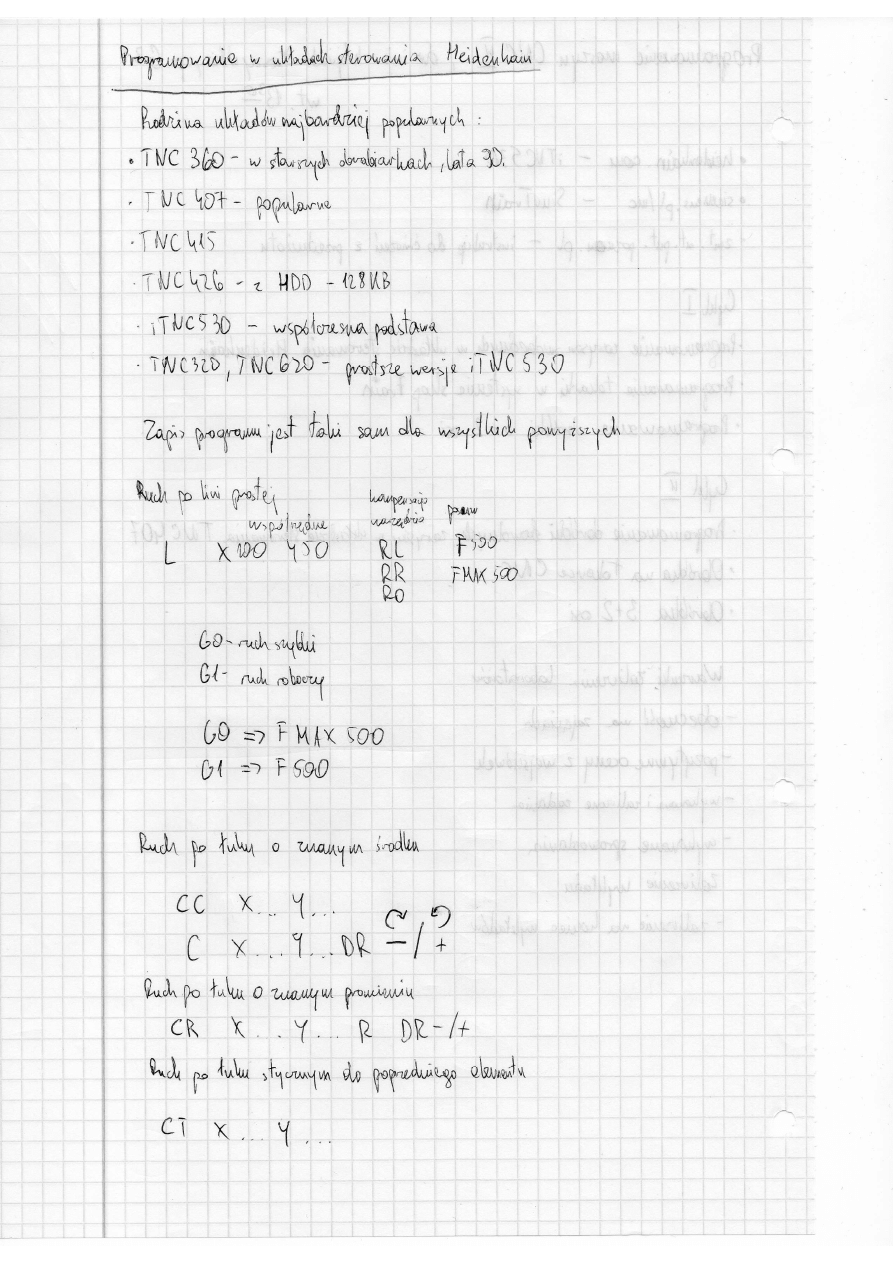 Programowanie w układach sterowania Heidenhain
Rodzina układów najbardziej popularnych :
• TNC 360 - w starszych obrabiarkach, lata 90.
· TNC 407 - popularne
· TNC 415
· TNC 426 - z HDD - 128KB
· iTNC530 - współczesna podstawa
· TNC320, TNC620 - prostsze wersje iTNC530
Zapis programu jest taki sam dla wszystkich powyższych
Ruch po lini prostej
współrzędne kompensacja narzędzia posuw
L X100 Y50 RL F500
RR FMAX 500
R0
G0 - ruch szybki
G1 - ruch roboczy
G0 => FMAX 500
G1 => F500
Ruch po łuku o znanym środku
CC X... Y...
C X... Y... DR -/+
Ruch po łuku o znanym promieniu
CR X... Y... R DR-/+
Ruch po łuku stycznym do poprzedniego elementu
CT X... Y...